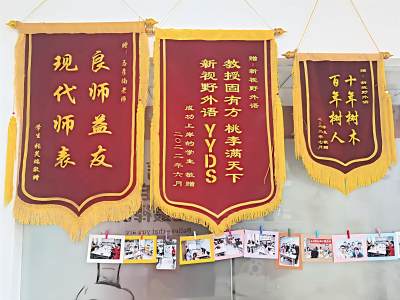 赠：
良师益友
现代师表
赠：新视野外语
教授固有方 桃李满天下
新视野外语YYDS
成功上岸的学生 敬赠
二〇二二年六月
赠：新视野外语
十年树木
百年树人